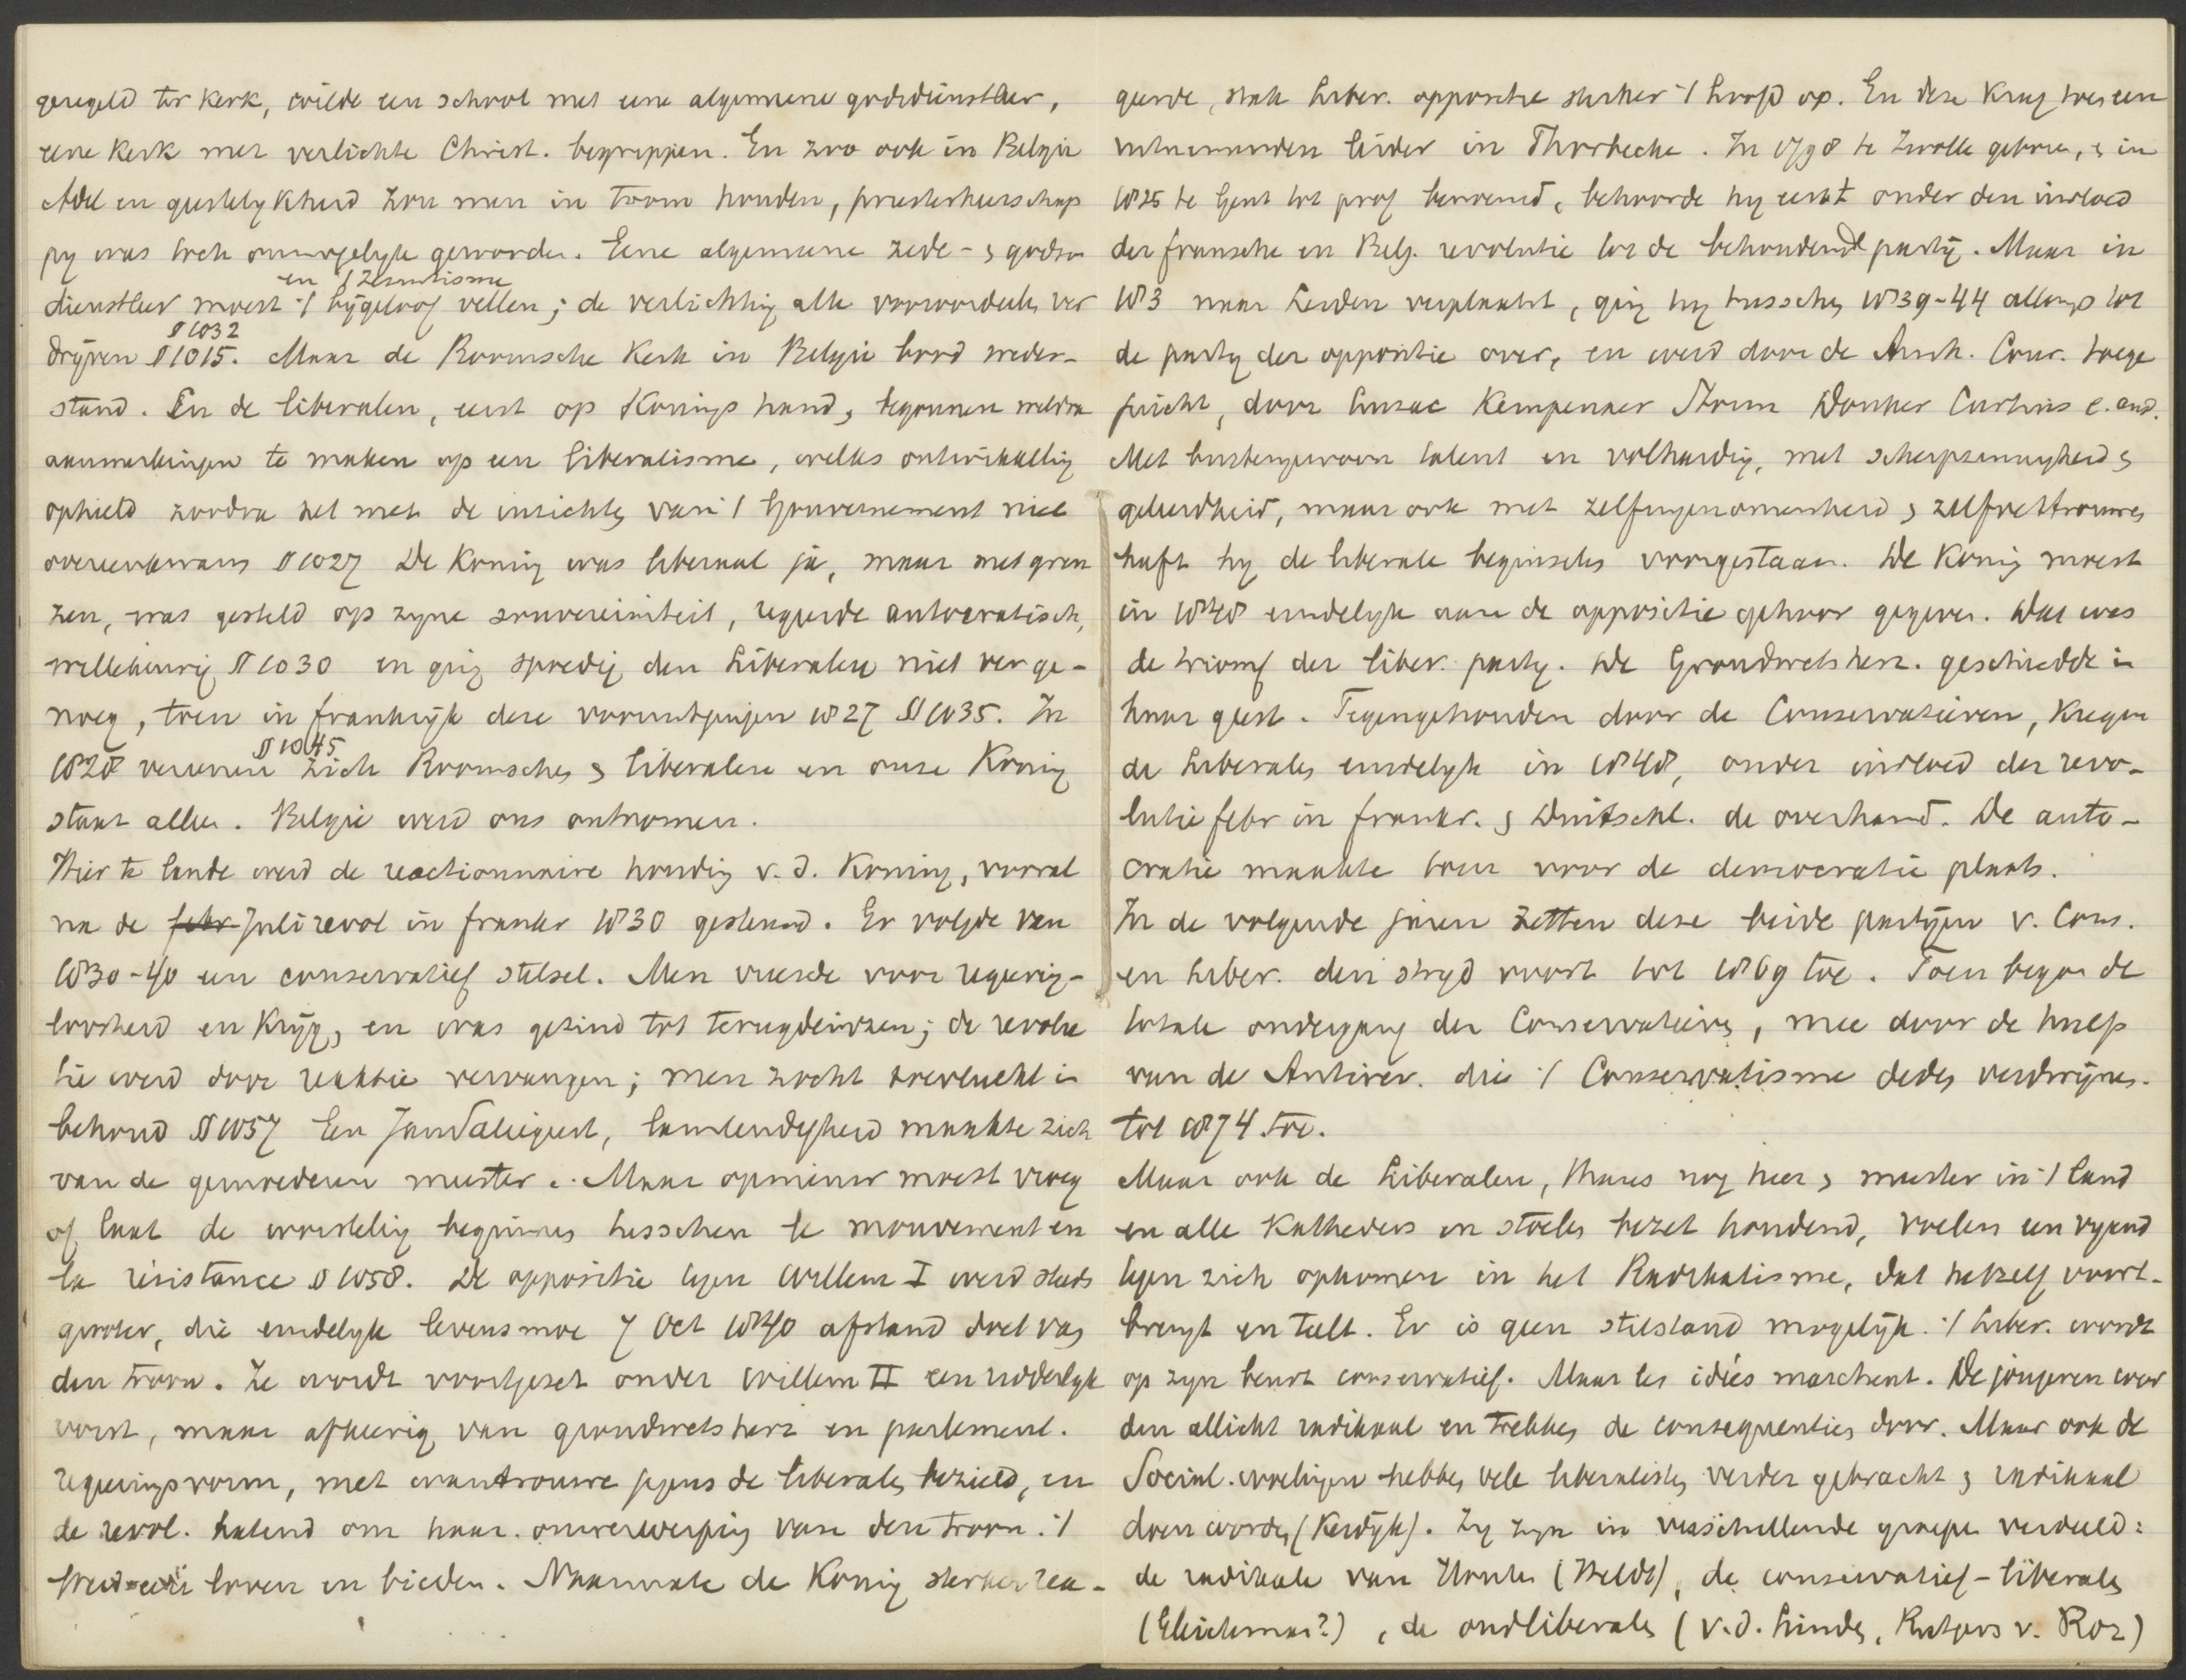 geregeld ter kerk, wilde een school met eene algemeene godsdienstleer,
eene kerk met verlichte Christ. begrippen. En zoo ook in Belgie
Adel en geestelykheid zou men in toom houden, priesterheerschap
py was toch onmogelyk geworden. Eene algemeene zede- & gods-
en 't Jesuitisme
dienstleer moest 't bygeloof vellen; de verlichting alle vooroordeelen ver
§ 1032
dryven § 1015. Maar de Roomsche Kerk in Belgie bood weder-
stand. En de liberalen, eerst op Konings hand, begonnen weldra
aanmerkingen te maken op een liberalisme, welks ontwikkeling
ophield zoodra het met de inzichten van 't Gouvernement niet
overeenkwam § 1027 De Koning was liberaal ja, maar met gren
zen, was gesteld op zyne souvereiniteit, regeerde autocratisch,
willekeurig § 1030 en ging spoedig den Liberalen niet ver ge-
noeg, toen in frankryk deze vooruitgingen 1827 § 1035. In
§ 1045
1828 vereenen zich Roomschen & liberalen en onze Koning
staat alleen. Belgie werd ons ontnomen.
Hier te lande werd de reactionnaire houding v. d. Koning, vooral
na de febr Juli revol in frankr 1830 gesteund. Er volgde van
1830-40 een conservatief stelsel. Men vreesde voor regering-
loosheid en Kryg, en was gezind tot terugdeinzen; de revolu
tie werd door reaktie vervangen; men zocht toevlucht in
behoud § 1057 Een Jansaliegeest, lamlendigheid maakte zich
van de gemoederen meester. Maar opnieuw moest vroeg
of laat de worsteling beginnen tusschen le mouvement en
la résistance § 1058. De oppositie tegen Willem I werd steeds
grooter, die eindelyk levensmoe 7 Oct 1840 afstand doet van
den troon. Ze wordt voortgezet onder Willem II een ridderlyk
vorst, maar afkeerig van grondwetsherz en parlement.
regeringsvorm, met wantrouwen jegens de liberalen bezield, en
de revol. hatend om haar omverwerping van den troon. 't
werd een loven en bieden. Naarmate de Koning sterker rea-
geerde, stak Liber. oppositie sterker 't hoofd op. En deze kreeg toen een
uitnemenden leider in Thorbecke. In 1798 te Zwolle geboren, & in
1825 te Gent tot prof benoemd, behoorde hy eerst onder den invloed
der fransche en Belg. revolutie tot de behoudende party. Maar in
183 naar Leiden verplaatst, ging hy tusschen 1839-44 allengs tot
de party der oppositie over, en werd door de Arnh. Cour. toege
juicht, door Luzac Kempenaer Storm Donker Curtius e. and.
Met buitengewoon talent en volharding, met scherpzinnigheid &
geleerdheid, maar ook met zelfingenomenheid & zelfvertrouwen
heeft hy de liberale beginselen voorgestaan. De Koning moest
in 1848 eindelyk aan de oppositie gehoor geven. Dat was
de triomf der liber. party. De Grondwetsherz. geschiedde in
haar geest. Tegengehouden door de Conservatieven, kregen
de Liberalen eindelyk in 1848, onder invloed der revo-
lutie febr in frankr. & Duitschl. de overhand. De auto-
cratie maakte toen voor de democratie plaats.
In de volgende jaren zetten deze beide partyen v. Cons.
en Liber. den stryd voort tot 1869 toe. Toen begon de
totale ondergang der Conservatieven, mee door de hulp
van de Antirev. die 't Conservatisme deden verdwynen.
tot 1874 toe.
Maar ook de Liberalen, thans nog heer & meester in 't land
en alle Katheders en stoelen bezet houdend, voelen een vyand
tegen zich opkomen in het Radikalisme, dat hetzelf voort-
brengt en teelt. Er is geen stilstand mogelyk. 't Liber. wordt
op zyn beurt conservatief. Maar les idées marchent. De jongeren wor
den allicht radikaal en trekken de consequenties door. Maar ook de
Social. woelingen hebben vele liberalisten verder gebracht & radikaal
doen worden (Kerdyk). Zy zyn in verschillende groepen verdeeld:
de radikale van Houten (Heldt), de conservatief-liberalen
(Gleichman?), de oudliberalen (v. d. Linden, Rutgers v. Roz)